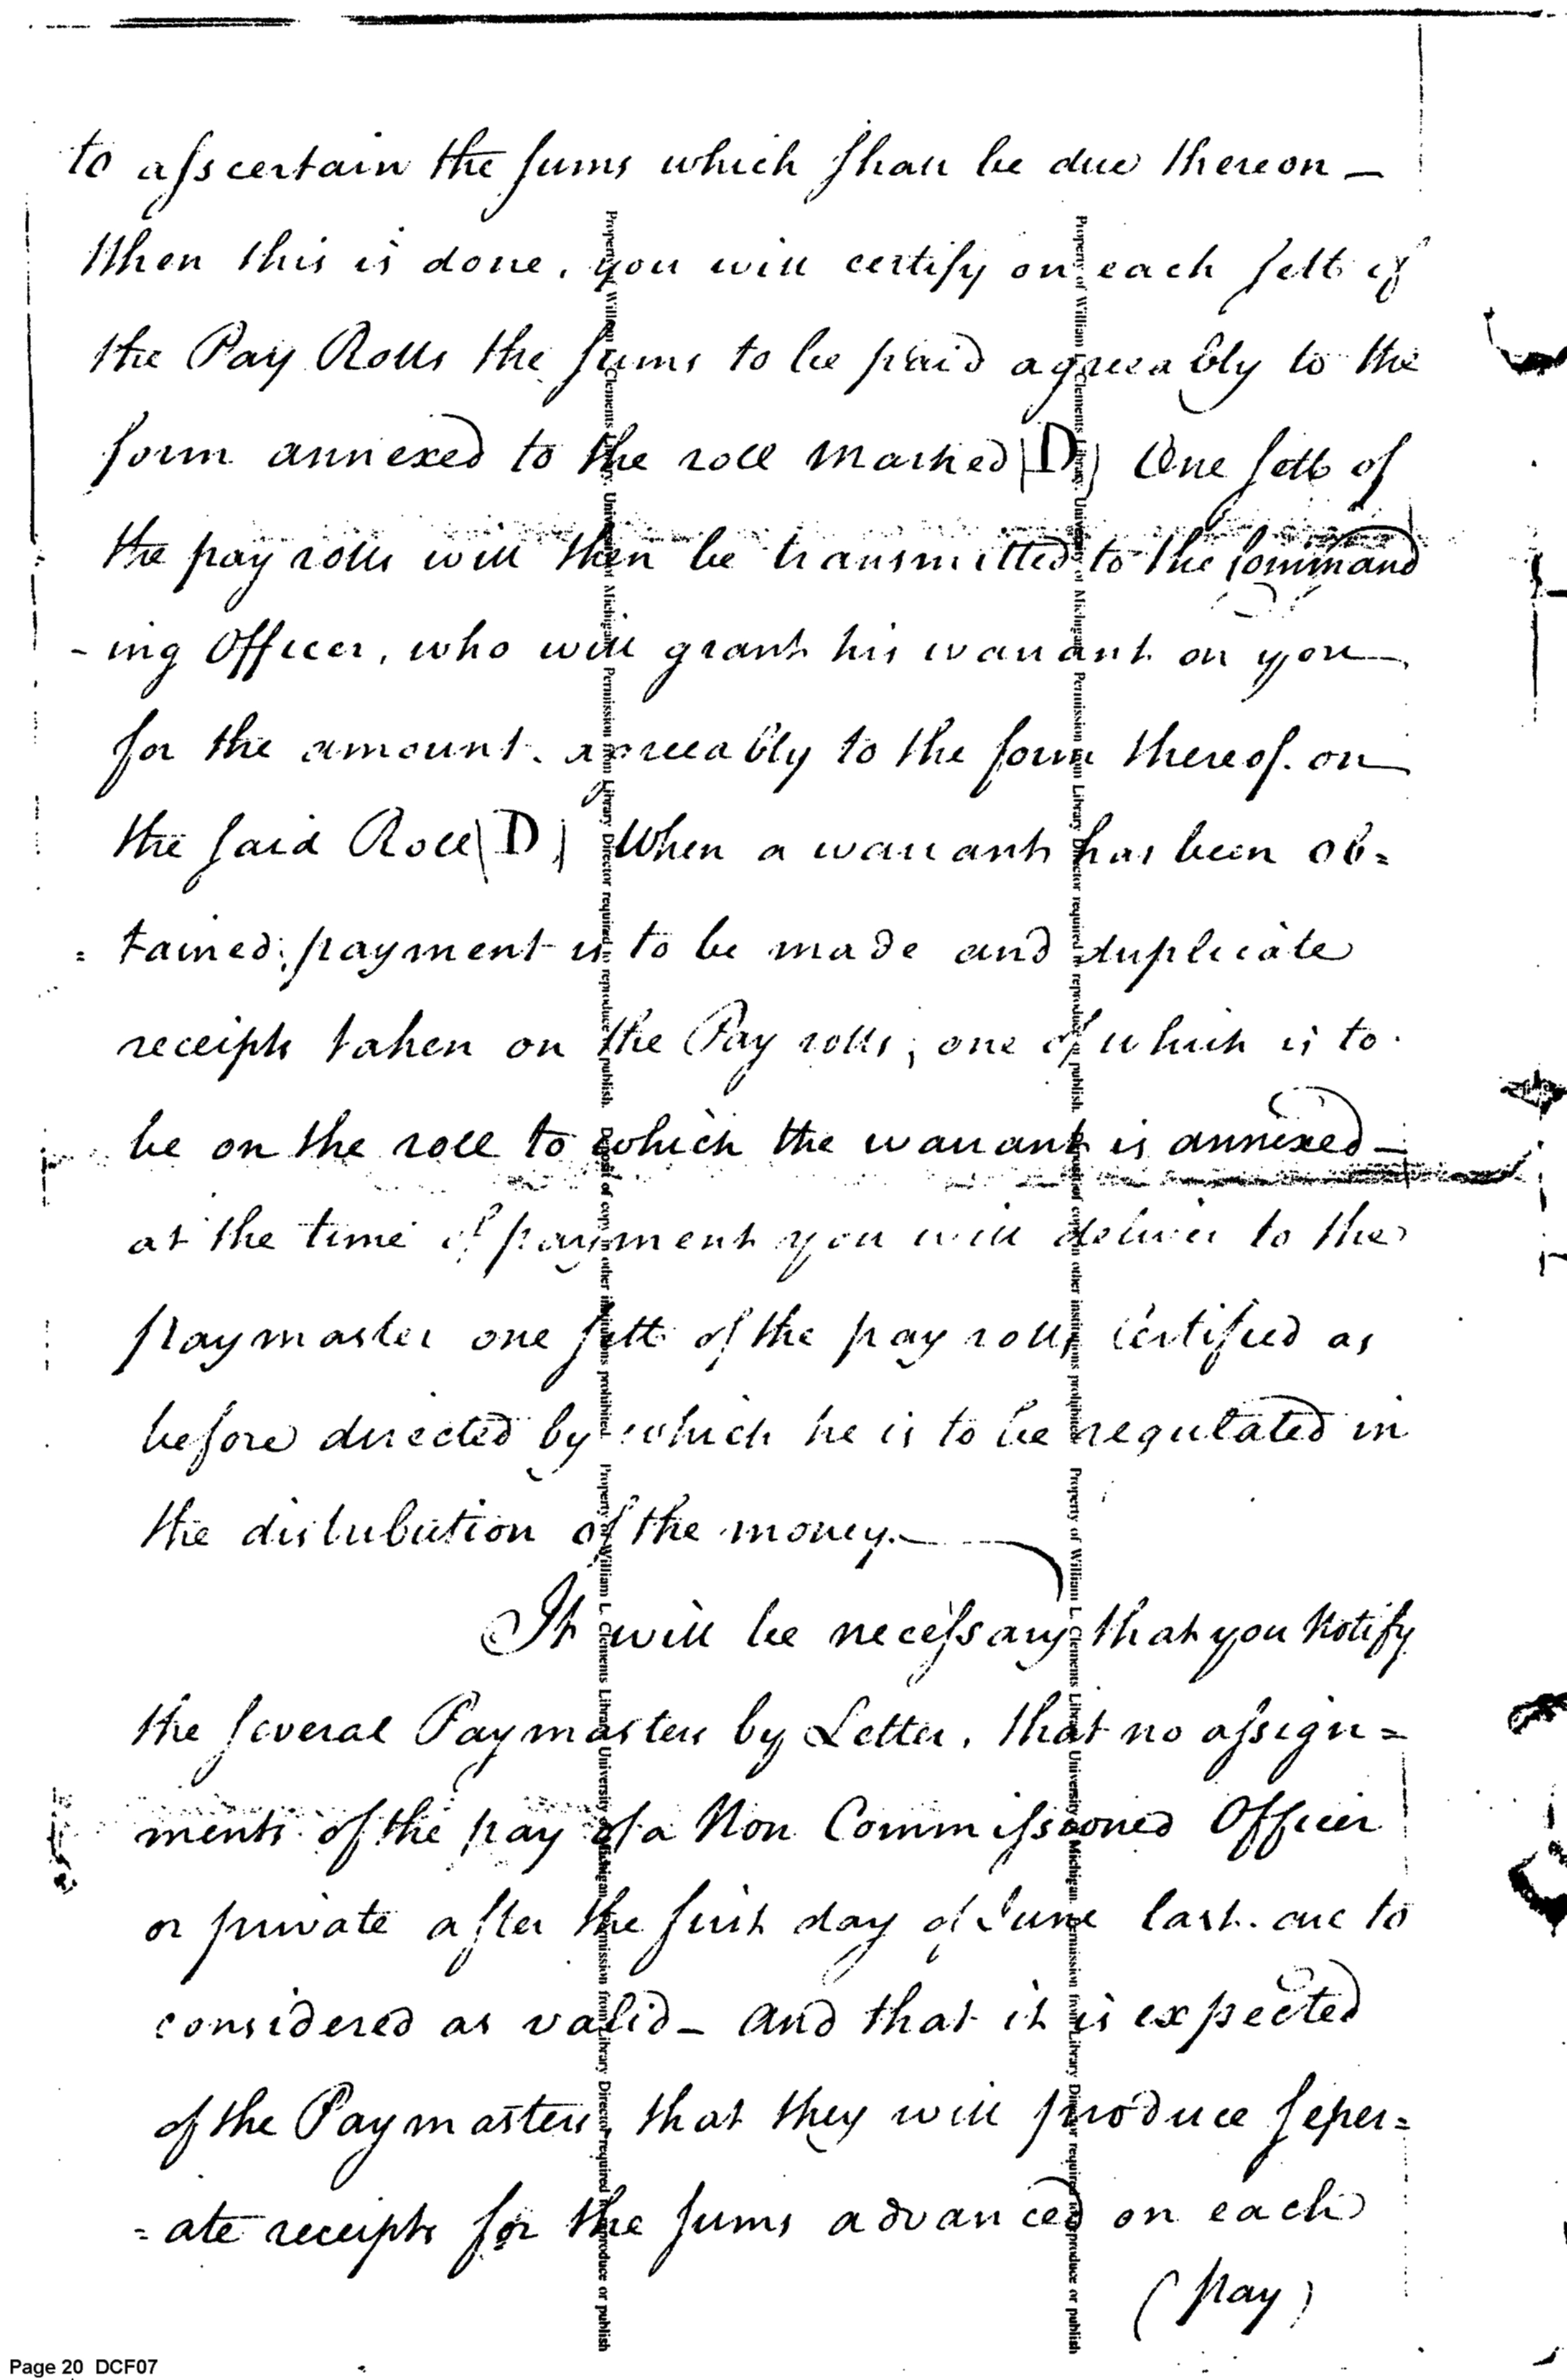 to asscertain the sums which shall be due thereon —
When this is done, you will certify on each sett of
the Pay Rolls the sums to be paid agreeably to the
form annexed to the roll marked (D) One sett of
the pay rolls will then be transmitted to the Command
- ing Officer, who will grant his warrant on you —
for the amount. agreeably to the form thereof. on —
the said Roll (D) When a warrant has been ob=
= tained, payment is to be made and duplicate
receipts taken on the Pay rolls; one of which is to
be on the roll to which the warrant is annexed —
at the time of payment you will deliver to the
paymaster one sett of the pay rolls certified as
before directed by which he is to be regulated in
the distribution of the money. —
It will be necessary that you Notify
the several Paymasters by Letter, that no assign=
ments of the pay of a Non Commissioned Officer
or private after the first day of June last. are to
considered as valid — and that it is expected
of the Paymasters that they will produce seper=
= ate receipts for the sums advanced on each
(pay)
Property of William L. Clements Library, University of Michigan. Permission from Library Director required to reproduce or publish. Deposit of copy in other institutions prohibited.
Property of William L. Clements Library, University of Michigan. Permission from Library Director required to reproduce or publish
Property of William L. Clements Library, University of Michigan. Permission from Library Director required to reproduce or publish. Deposit of copy in other institutions prohibited.
Property of William L. Clements Library, University of Michigan. Permission from Library Director required to reproduce or publish
Page 20 DCF07